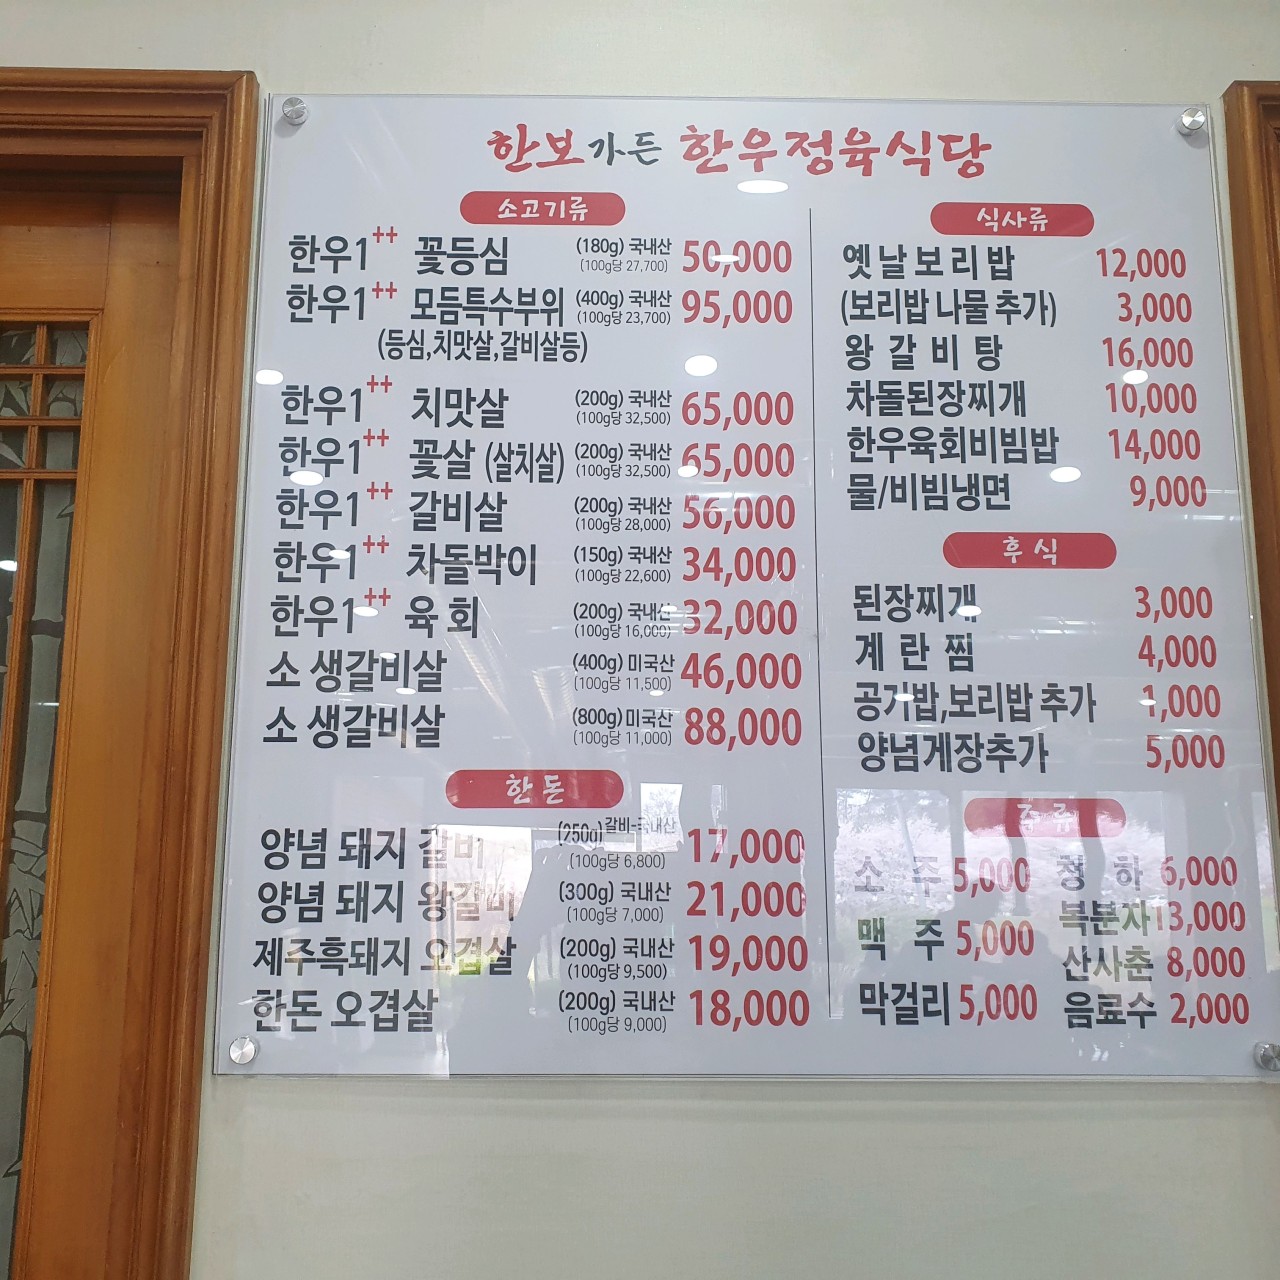 한보가든 한우정육식당
소고기류
한우1++ 꽃등심 (180g) 국내산 (100g당 27,700) 50,000
한우1++ 모듬특수부위 (400g) 국내산 (100g당 23,700) 95,000
(등심,치맛살,갈비살등)
한우1++ 치맛살 (200g) 국내산 (100g당 32,500) 65,000
한우1++ 꽃살 (살치살) (200g) 국내산 (100g당 32,500) 65,000
한우1++ 갈비살 (200g) 국내산 (100g당 28,000) 56,000
한우1++ 차돌박이 (150g) 국내산 (100g당 22,600) 34,000
한우1++ 육 회 (200g) 국내산 (100g당 16,000) 32,000
소 생갈비살 (400g) 미국산 (100g당 11,500) 46,000
소 생갈비살 (800g) 미국산 (100g당 11,000) 88,000
한 돈
양념 돼지 갈비 (250g) 갈비-국내산 (100g당 6,800) 17,000
양념 돼지 왕갈비 (300g) 국내산 (100g당 7,000) 21,000
제주흑돼지 오겹살 (200g) 국내산 (100g당 9,500) 19,000
한돈 오겹살 (200g) 국내산 (100g당 9,000) 18,000
식사류
옛날보리밥 12,000
(보리밥 나물 추가) 3,000
왕 갈 비 탕 16,000
차돌된장찌개 10,000
한우육회비빔밥 14,000
물/비빔냉면 9,000
후 식
된장찌개 3,000
계 란 찜 4,000
공기밥,보리밥 추가 1,000
양념게장추가 5,000
주 류
소 주 5,000 청 하 6,000
맥 주 5,000 복분자 13,000
산사춘 8,000
막걸리 5,000 음료수 2,000